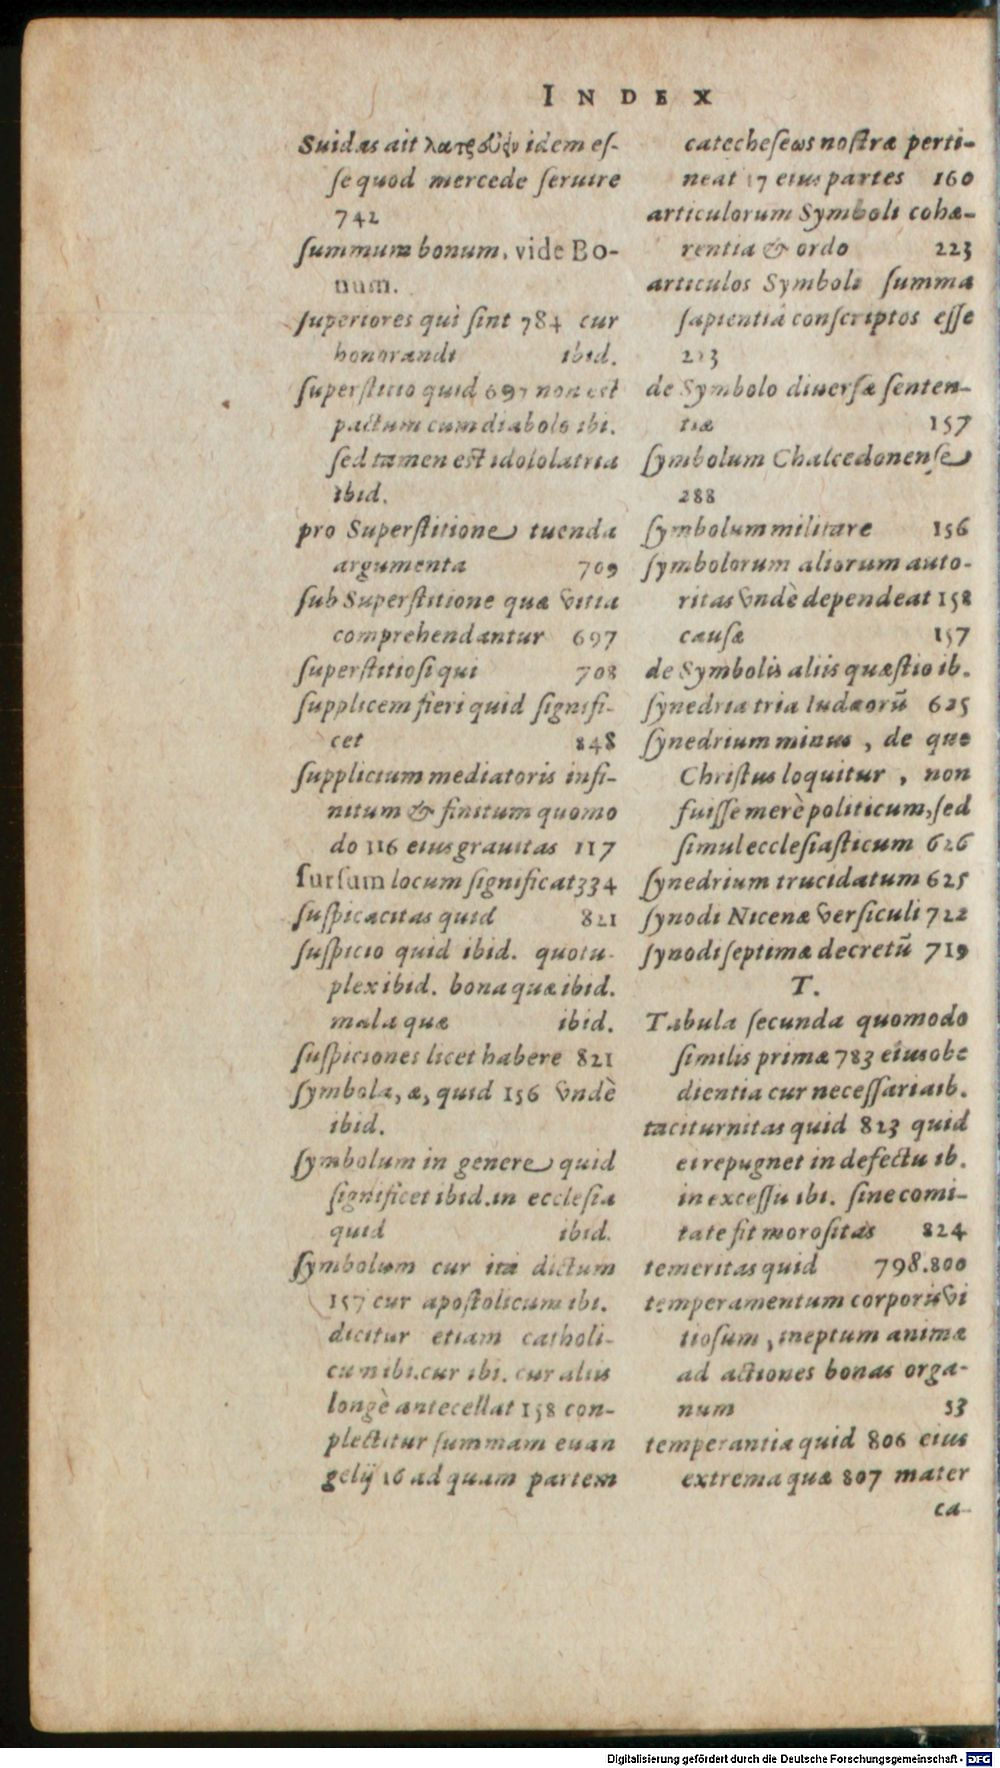 INDEX
Suidas ait λατρεύειν idem es-
se quod mercede seruire
742
summum bonum, vide Bo-
num.
superiores qui sint 784 cur
honorandi ibid.
superstitio quid 697 non est
pactum cum diabolo ibi.
sed tamen est idololatria
ibid.
pro Superstitione tuenda
argumenta 709
sub Superstitione quæ vitia
comprehendantur 697
superstitiosi qui 708
supplicem fieri quid signifi-
cet 848
supplicium mediatoris infi-
nitum & finitum quomo
do 116 eius grauitas 117
sursum locum significat 334
suspicacitas quid 821
suspicio quid ibid. quotu-
plex ibid. bona quæ ibid.
mala quæ ibid.
suspiciones licet habere 821
symbola, æ, quid 156 vndè
ibid.
symbolum in genere quid
significet ibid. in ecclesia
quid ibid.
symbolum cur ita dictum
157 cur apostolicum ibi.
dicitur etiam catholi-
cum ibi. cur ibi. cur aliis
longè antecellat 158 con-
plectitur summam euan
gelij 16 ad quam partem
catecheseωs nostræ perti-
neat 17 eius partes 160
articulorum Symboli cohæ-
rentia & ordo 223
articulos Symboli summa
sapientiâ conscriptos esse
213
de Symbolo diuersæ senten-
tiæ 157
symbolum Chalcedonense
288
symbolum militare 156
symbolorum aliorum auto-
ritas vndè dependeat 158
causæ 157
de Symbolis aliis quæstio ib.
synedria tria Iudæorũ 625
synedrium minus, de quo
Christus loquitur, non
fuisse merè politicum, sed
simul ecclesiasticum 626
synedrium trucidatum 625
synodi Nicenæ versiculi 722
synodi septimæ decretũ 719
T.
Tabula secunda quomodo
similis primæ 783 eius obe
dientia cur necessaria ib.
taciturnitas quid 823 quid
ei repugnet in defectu ib.
in excessu ibi. sine comi-
tate fit morositas 824
temeritas quid 798.800
temperamentum corporis vi
tiosum, ineptum animæ
ad actiones bonas orga-
num 53
temperantia quid 806 eius
extrema quæ 807 mater
ca-
Digitalisierung gefördert durch die Deutsche Forschungsgemeinschaft - DFG